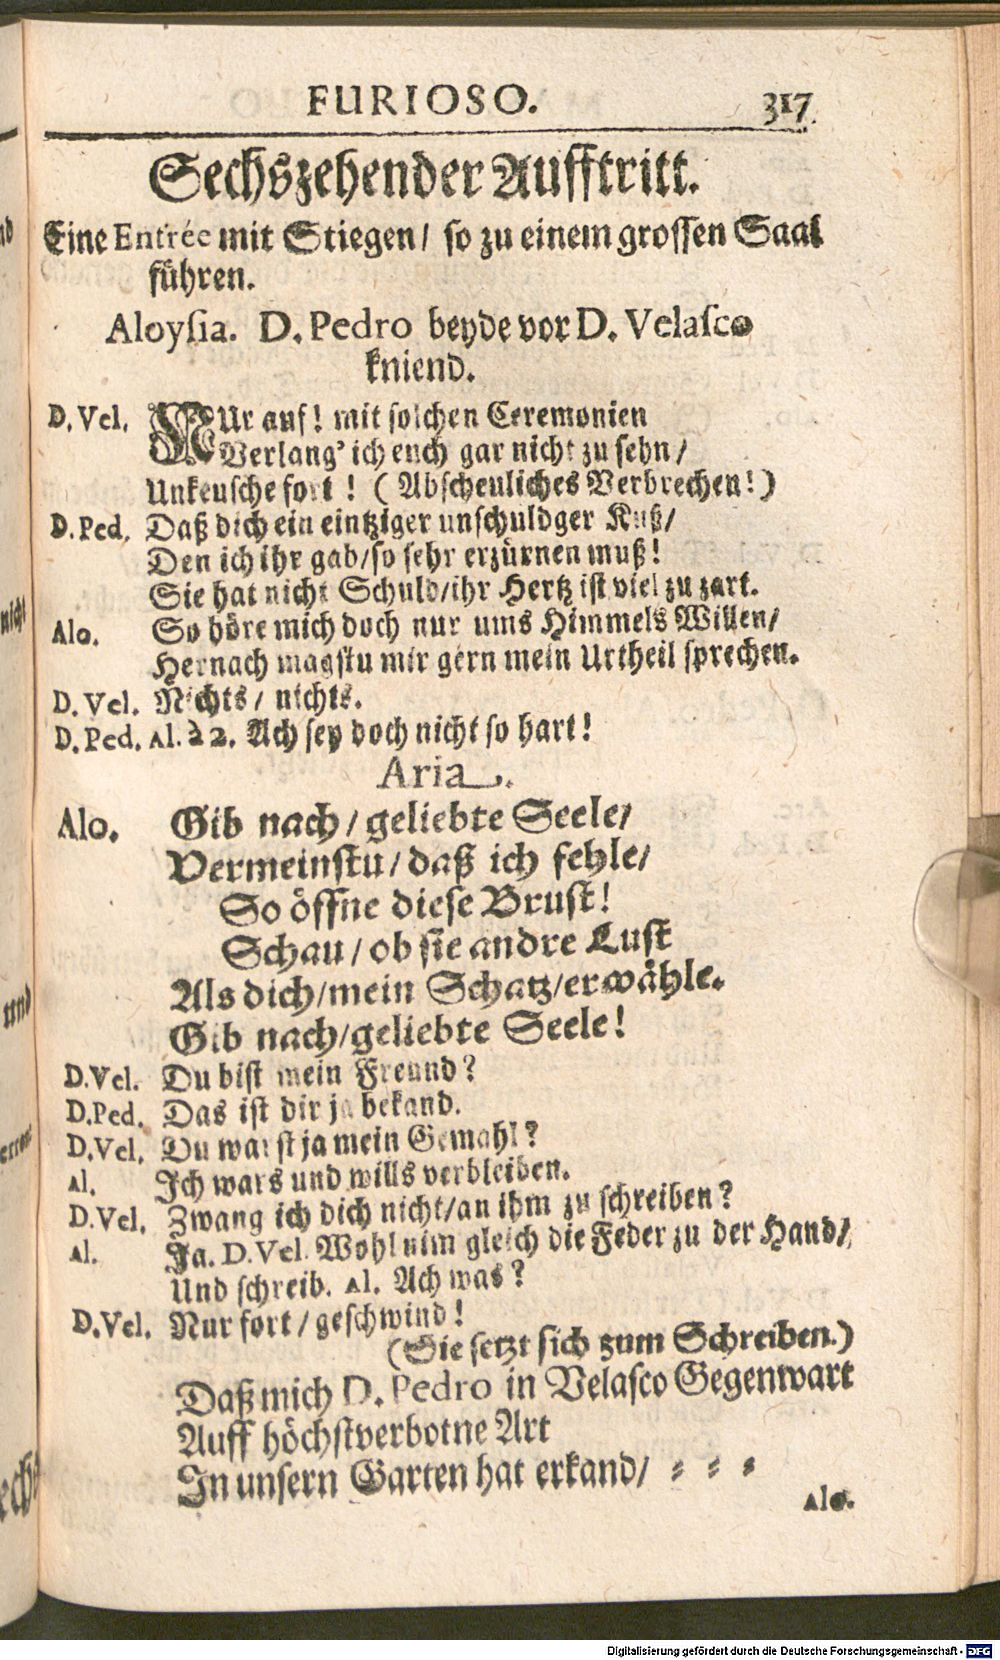 FURIOSO. 317
Sechszehender Aufftritt.
Eine Entrée mit Stiegen/ so zu einem grossen Saal
führen.
Aloysia. D. Pedro beyde vor D. Velasco
kniend.
D. Vel. NUr auf! mit solchen Ceremonien
Verlang' ich euch gar nicht zu sehn/
Unkeusche fort! (Abscheuliches Verbrechen!)
D. Ped. Daß dich ein eintziger unschuldger Kuß/
Den ich ihr gab/so sehr erzürnen muß!
Sie hat nicht Schuld/ihr Hertz ist viel zu zart.
Alo. So höre mich doch nur ums Himmels Willen/
Hernach magstu mir gern mein Urtheil sprechen.
D. Vel. Nichts/ nichts.
D. Ped. Al. à 2. Ach sey doch nicht so hart!
Aria.
Alo. Gib nach/ geliebte Seele/
Vermeinstu/ daß ich fehle/
So öffne diese Brust!
Schau/ ob sie andre Lust
Als dich/mein Schatz/erwähle.
Gib nach/geliebte Seele!
D.Vel. Du bist mein Freund?
D.Ped. Das ist dir ja bekand.
D.Vel. Du warst ja mein Gemahl?
Al. Ich wars und wills verbleiben.
D.Vel. Zwang ich dich nicht/an ihm zu schreiben?
Al. Ja. D. Vel. Wohl nim gleich die Feder zu der Hand/
Und schreib. Al. Ach was?
D.Vel. Nur fort/ geschwind!
(Sie setzt sich zum Schreiben.)
Daß mich D. Pedro in Velasco Gegenwart
Auff höchstverbotne Art
In unsern Garten hat erkand/ = = =
Alo.
Digitalisierung gefördert durch die Deutsche Forschungsgemeinschaft - DFG